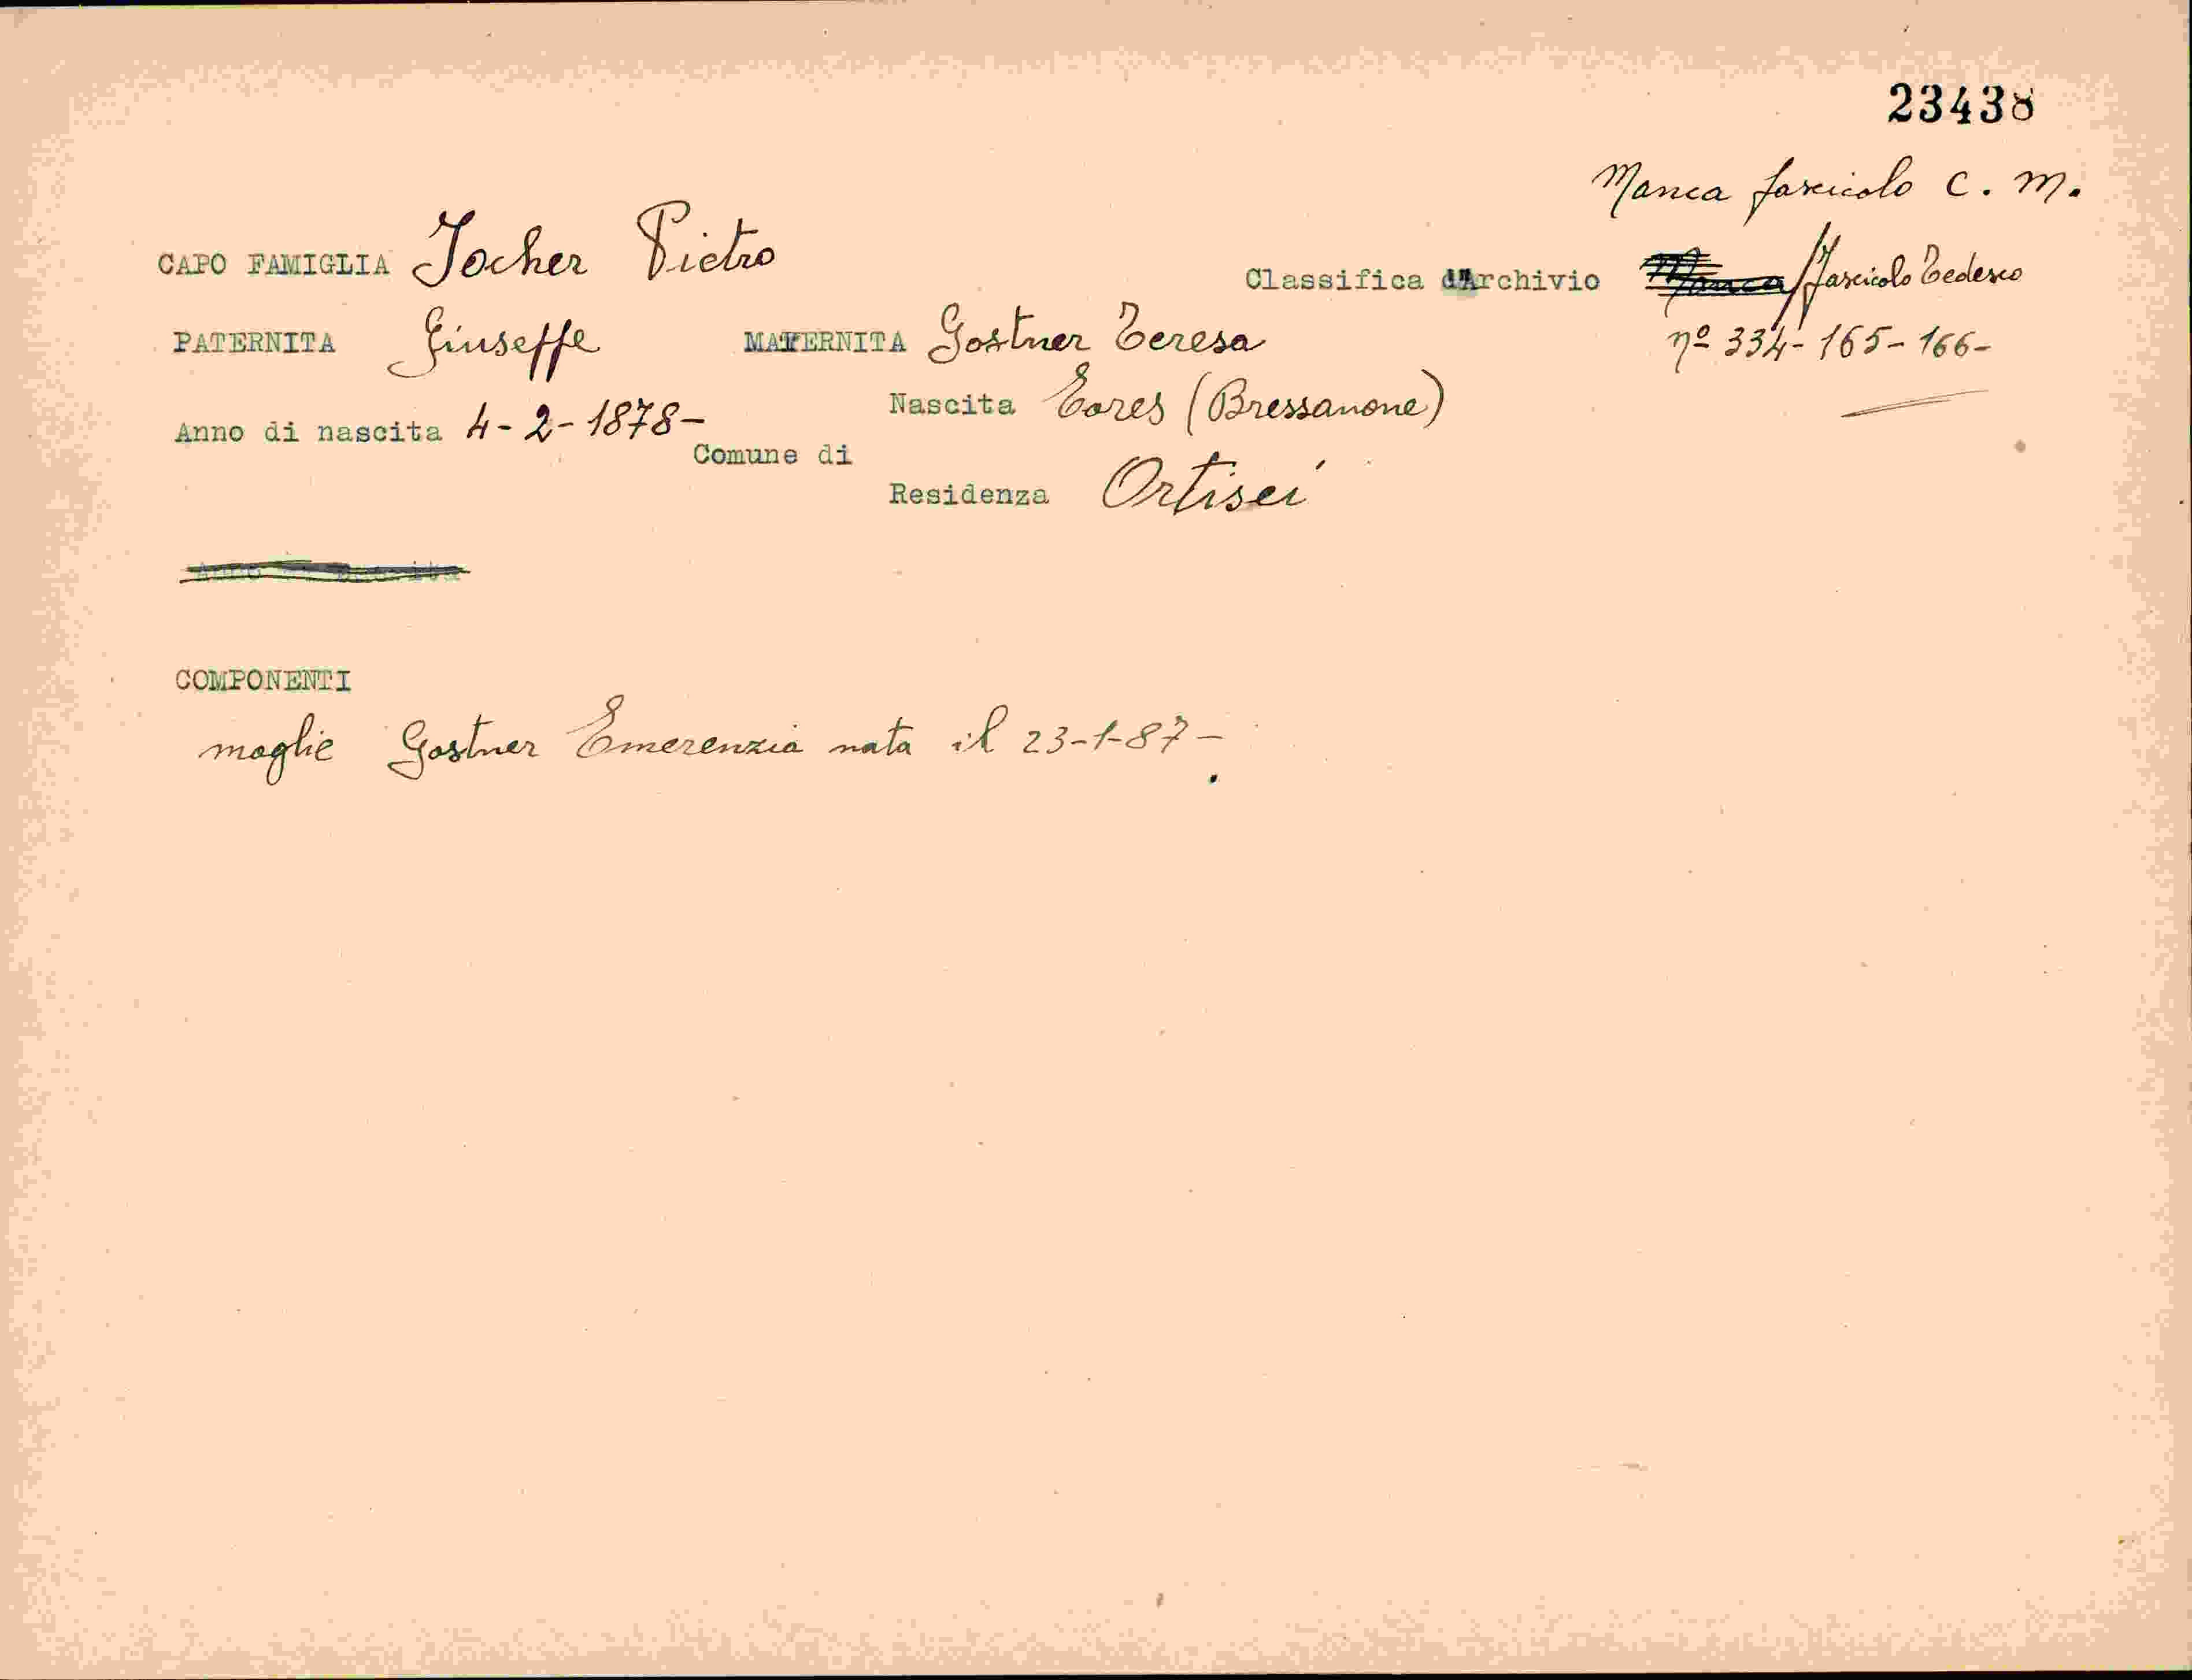 23438
Manca fascicolo C. M.
CAPO FAMIGLIA Jocher Pietro
Classifica d'Archivio Manca / fascicolo Tedesco
nº 334-165-166-
PATERNITA Giuseppe MATERNITA Gostner Teresa
Anno di nascita 4-2-1878-
Comune di
Nascita Eores (Bressanone)
Residenza Ortisei
Anno di nascita
COMPONENTI
moglie Gostner Emerenzia nata il 23-1-87-.